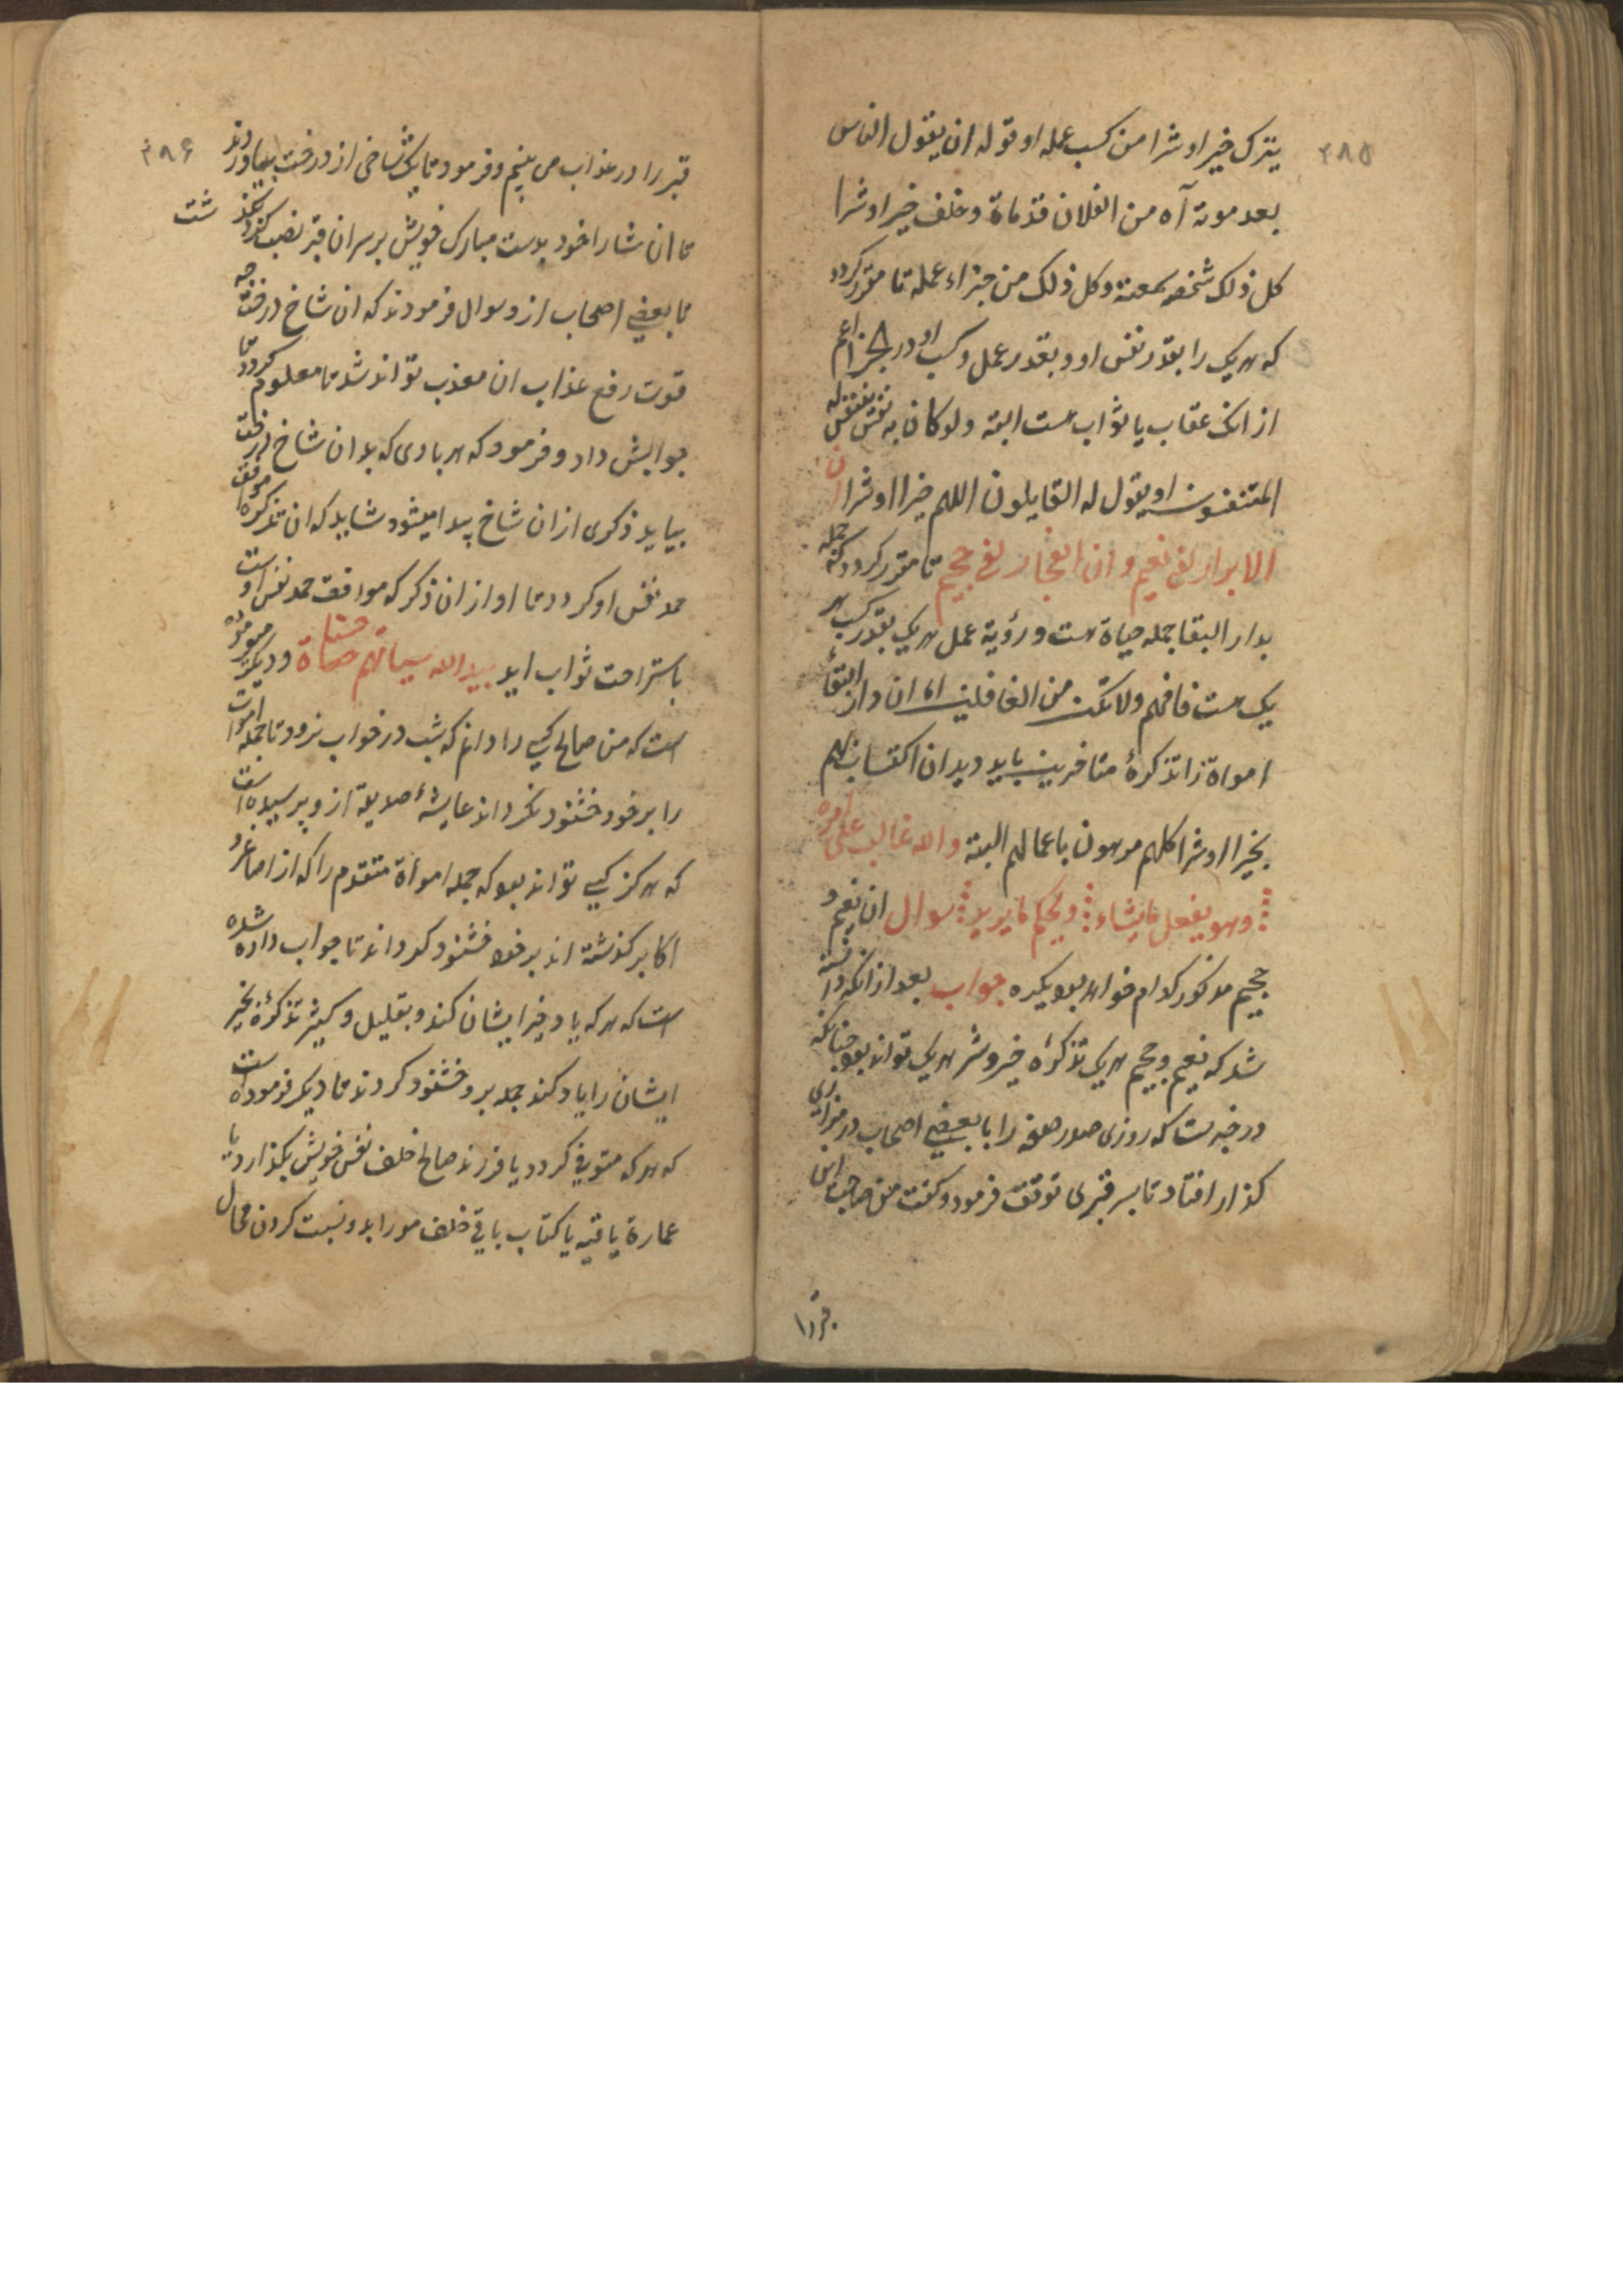 ۲۸۵
یترک خیرا و شرا من کسب عمله او قوله ان یقول الناس
بعد موته آه من الفلان قد ماة و خلف خیرا و شرا
کل ذلک شخصه بمعنه و کل ذلک من جزاء عمله تا مقرر کردد
که هر یک را بقدر نفس او و بقدر عمل و کسب او در جزا اعم
از انک عقاب یا ثواب هست البته ولو کان به نفس
المتنفسون او یقول له القایلون اللهم خیرا او شرا ان
الابرار لفی نعیم و ان الفجار لفی جحیم تا مقرر کردد که جمله
بدار البقا جمله حیاة هست و رؤیة عمل هر یک بقدر کسب هر
یک هست فافهم ولا تکن من الغافلین اما ان دار البقاء
امواة را تذکرهٔ متاخرین باید دید ان اکتسابهم
بخیرا او شرا کلهم مرهون باعمالهم البته والله غالب علی امره
وهو یفعل مایشاء و یحکم مایرید سوال ان نعیم و
جحیم مذکور کدام خواهد بود یکیره جواب بعد از انکه دانسته
شد که نعیم و جحیم هر یک تذکرهٔ خیر و شر هر یک تواند بود چنانکه
در خبر هست که روزی صدر صفه را با بعضی اصحاب در مزاری
کذار افتاد تا بسر قبری توقف فرمود و کفت من صاحب این
قبر را
۲۸۶
قبر را در عذاب می بینم و فرمود تا یک شاخی از درخت بیاورند
تا ان شا را خود بدست مبارک خویش بر سر ان قبر نصب کند
شت
تا بعضی اصحاب از و سوال فرمودند که ان شاخ درخت چه
قوت رفع عذاب ان معذب تواند شد تا معلوم کردد تا
جوابش داد و فرمود که هر بادی که بدان شاخ درخت
بیاید ذکری از ان شاخ پیدا میشود شاید که ان تذکره موافق
حمد نفس او کردد تا او از ان ذکر که موافقت حمد نفس اوست
باستراحت ثواب اید یبدل الله سیاتهم حسناة و دیکر فرموده
است که من صالح کسی را دانم که شب در خواب نرود تا جمله اموات
را بر خود خشنود نکرداند عایشهٔ صدیقه از و پرسیده است
که هرکز کسی تواند بود که جمله امواة متقدم را که از اصاغر و
اکابر کذشته اند بر خود خشنود کرداند تا جواب داده شده
است که هر که یاد خیر ایشان کند و بقلیل و کثیر تذکرهٔ بخیر
ایشان را یاد کند جمله بر و خشنود کردند تا دیکر فرموده است
که هر که متوفی کردد یا فرزند صالح اخلف نفس خویش بکذارد یا
عمارة باقیه یا کتاب باقی خلف مر را بد و نسبت کردن محال